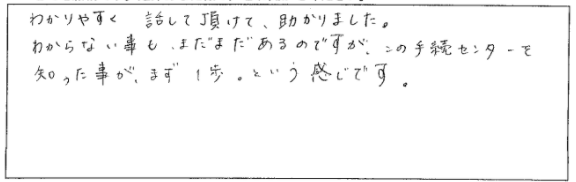 わかりやすく 話して頂けて、助かりました。
わからない事も、まだまだあるのですが、この手続センターを
知った事が、まず 1歩。という感じです。